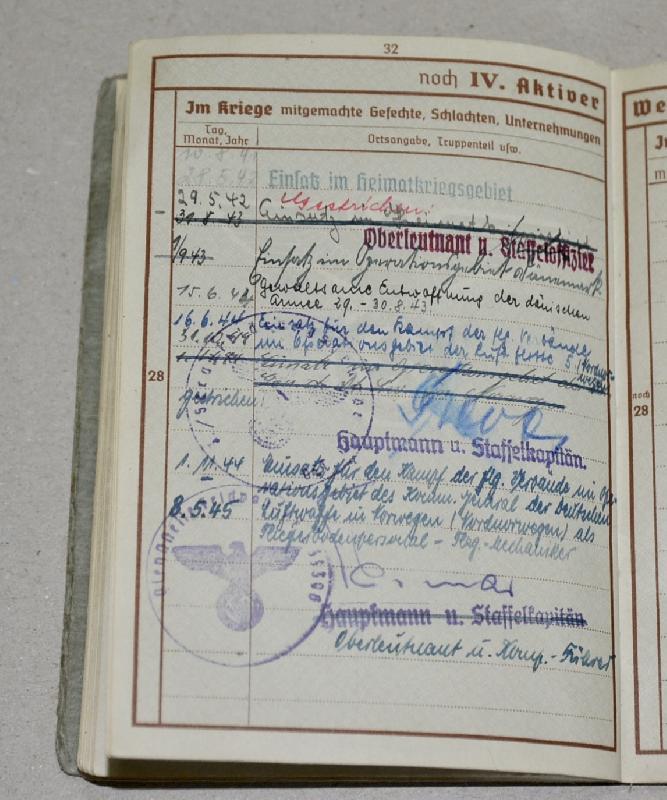 32
noch IV. Aktiver
Im Kriege mitgemachte Gefechte, Schlachten, Unternehmungen
Tag, Monat, Jahr
Ortsangabe, Truppenteil usw.
10.8.41
28.5.42 Einsatz im Heimatkriegsgebiet
29.5.42 Gestrichen!
31.8.43 Einsatz im
Oberleutnant u. Staffeloffizier
1/9.43 Einsatz im Operationsgebiet Dänemark
15.6.44 gewaltsame Entwaffnung der dänischen
Armee 29. - 30.8.43
16.6.44 Einsatz für den Kampf der flg. Verbände
im Operationsgebiet der Luftflotte 5
28
Einsatz im
gestrichen!
Hauptmann u. Staffelkapitän.
1.11.44 Einsatz für den Kampf der flg. Verbände im Ope-
rationsgebiet des Komm. General der Deutschen
8.5.45 Luftwaffe in Norwegen (Nordnorwegen) als
Fliegerbodenpersonal - Flzg.-Mechaniker
Hauptmann u. Staffelkapitän
Oberleutnant u. Komp.-Führer
We
noch
28